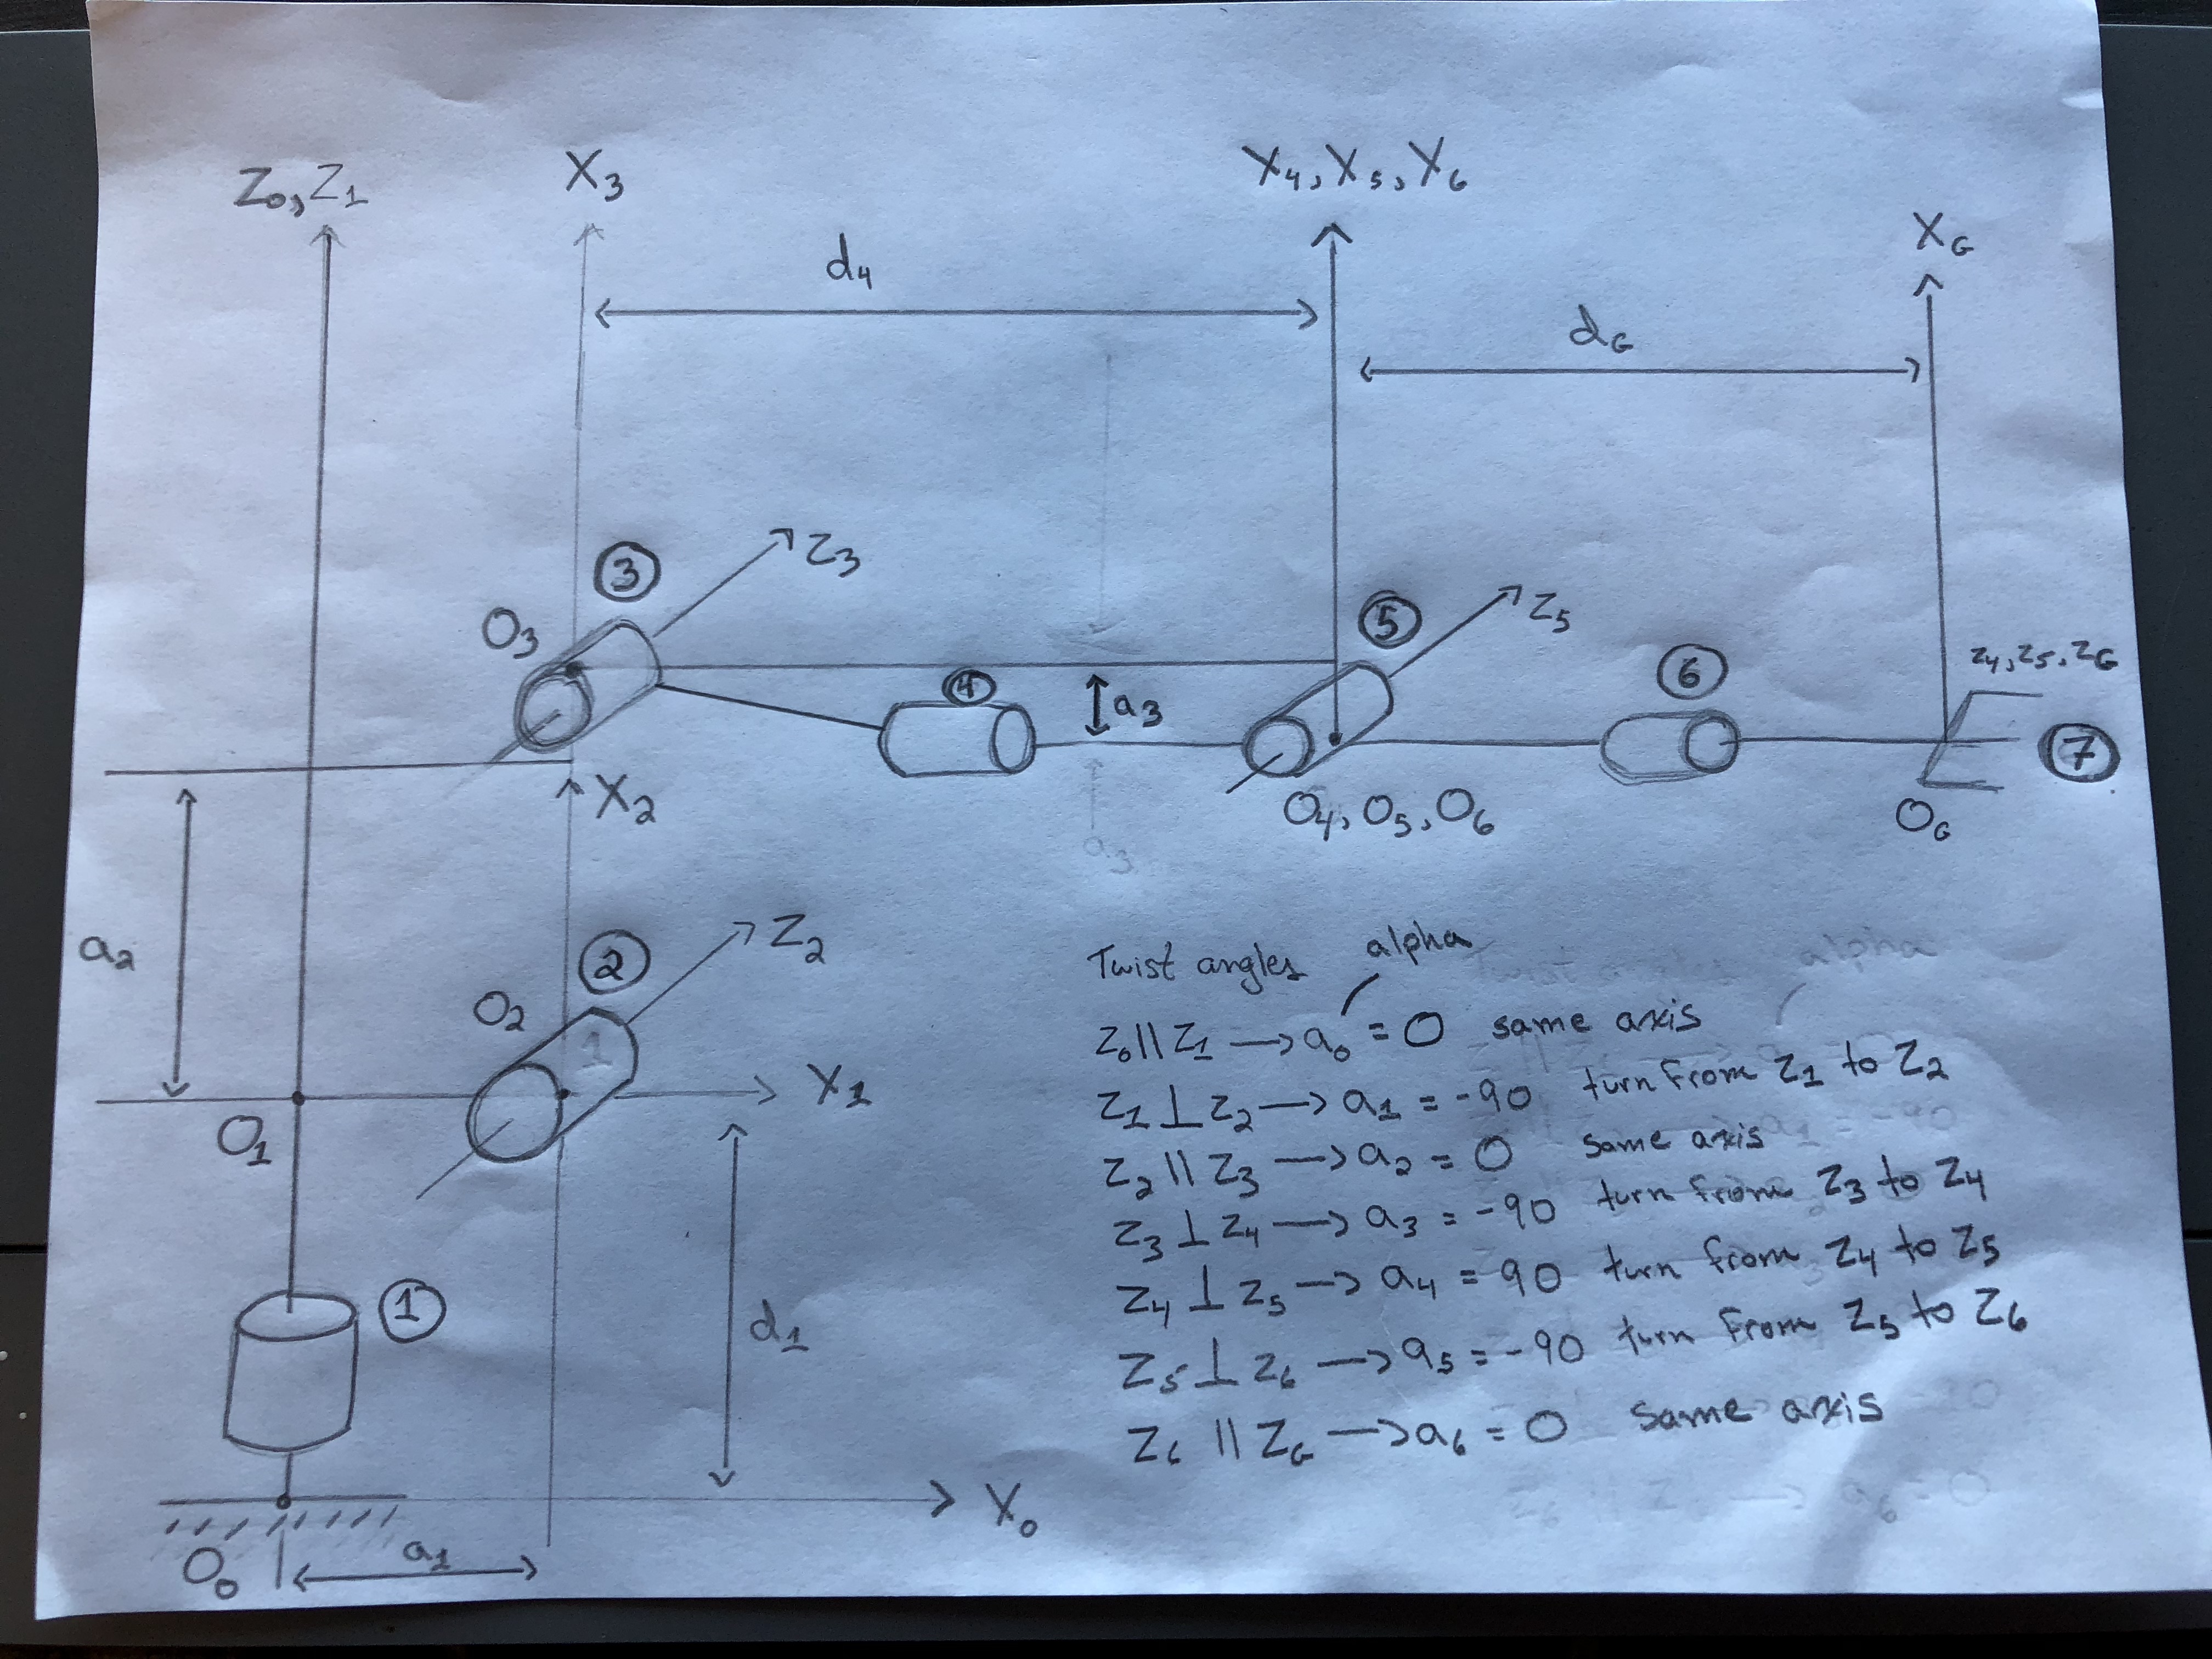 Z₀, Z₁
X₃
X₄, X₅, X₆
X_G
d₄
d_G
Z₃
③
O₃
Z₅
⑤
④
⑥
Z₄, Z₅, Z_G
a₃
⑦
X₂
O₄, O₅, O₆
O_G
a₃
a₂
Z₂
②
O₂
1
X₁
O₁
①
d₁
X₀
O₀
a₁
Twist angles alpha
Z₀ || Z₁ → a₀ = 0 same axis
Z₁ ⊥ Z₂ → a₁ = -90 turn from Z₁ to Z₂
Z₂ || Z₃ → a₂ = 0 same axis
Z₃ ⊥ Z₄ → a₃ = -90 turn from Z₃ to Z₄
Z₄ ⊥ Z₅ → a₄ = 90 turn from Z₄ to Z₅
Z₅ ⊥ Z₆ → a₅ = -90 turn from Z₅ to Z₆
Z₆ || Z_G → a₆ = 0 same axis